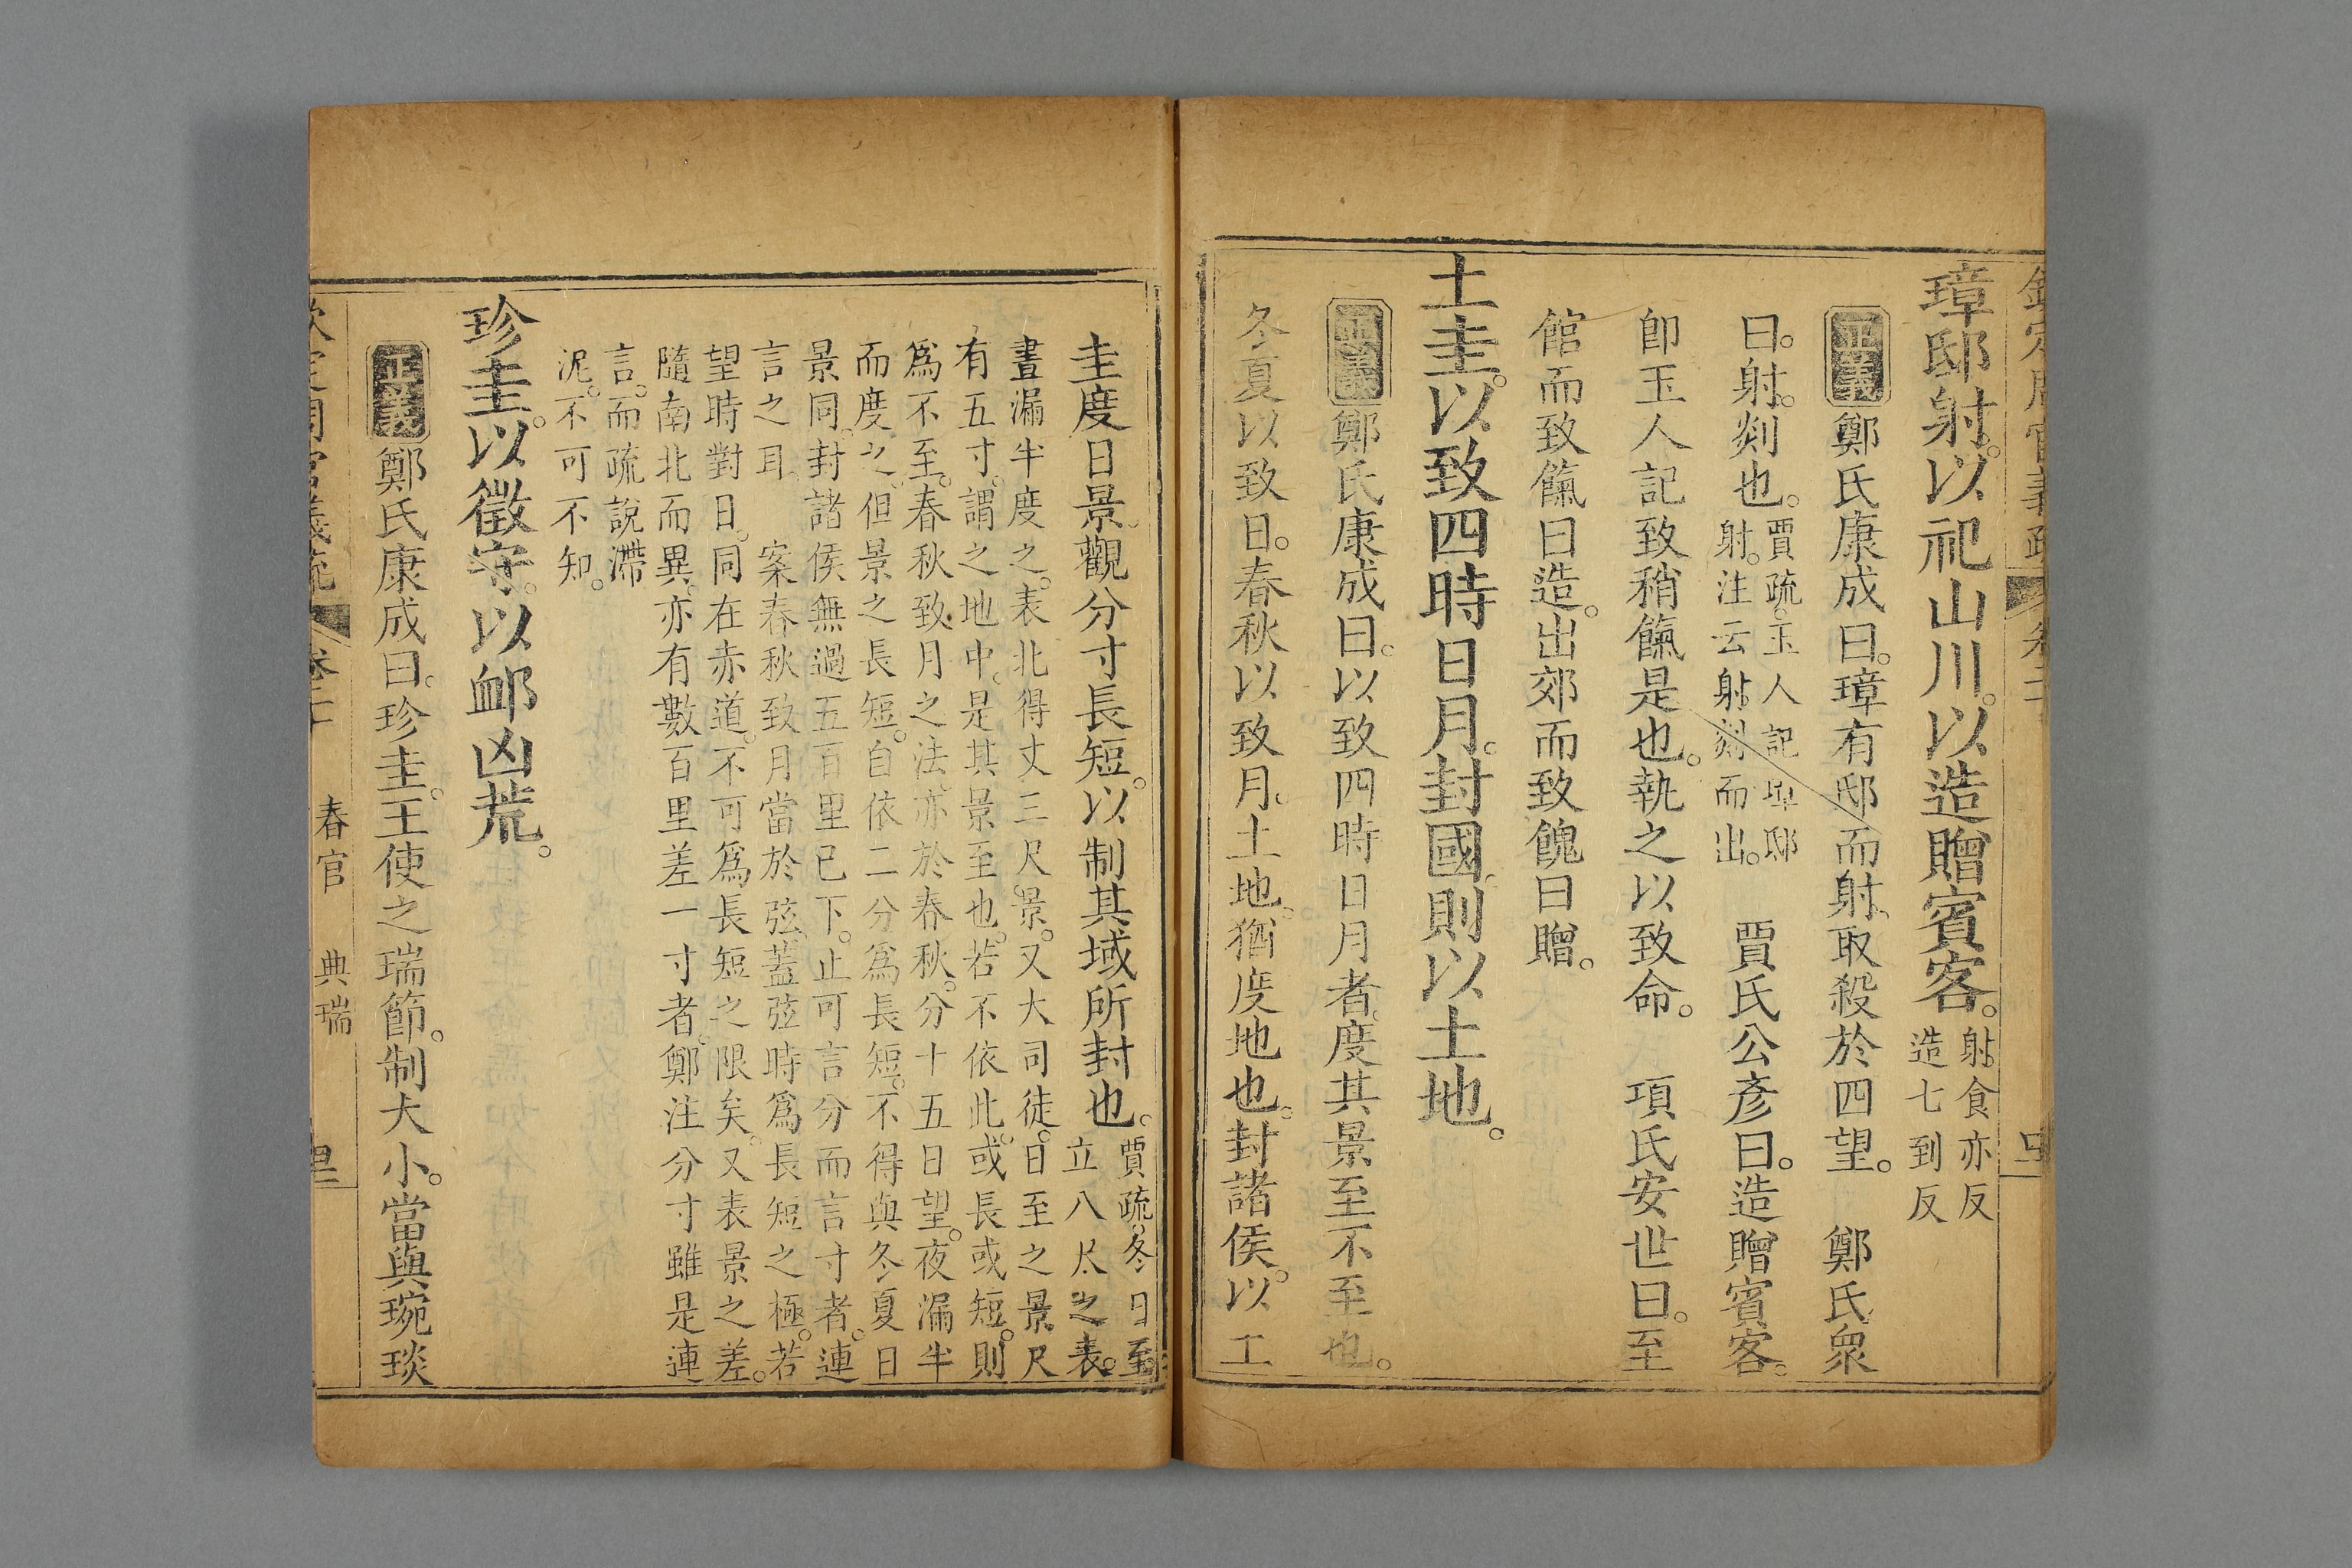 欽定周官義疏
璋邸射。以祀山川。以造贈賓客。
射。食亦反
造七到反
正義鄭氏康成曰。璋有邸而射。取殺於四望。 鄭氏衆
曰。射。剡也。
賈疏。玉人記琕邸
射。注云射。剡而出。
賈氏公彥曰。造贈賓客。
卽玉人記致稍餼是也。執之以致命。 項氏安世曰。至
館而致餼曰造。出郊而致餽曰贈。
土圭。以致四時日月。封國則以土地。
正義鄭氏康成曰。以致四時日月者。度其景至不至也。
冬夏以致日。春秋以致月。土地。猶度地也。封諸侯。以土
圭度日景。觀分寸長短。以制其域所封也。
賈疏。冬日至。
立八尺之表。
晝漏半度之。表北得丈三尺景。又大司徒。日至之景。尺
有五寸。謂之地中。是其景至也。若不依此。或長或短。則
爲不至。春秋致月之法。亦於春秋。分十五日望。夜漏半
而度之。但景之長短。自依二分爲長短。不得與冬夏日
景同。封諸侯無過五百里已下。止可言分而言寸者。連
言之耳。 案春秋致月當於弦。蓋弦時爲長短之極。若
望時對日。同在赤道。不可爲長短之限矣。又表景之差。
隨南北而異。亦有數百里差一寸者。鄭注分寸雖是連
言。而疏說滯
泥。不可不知。
珍圭。以徵守。以䘏凶荒。
正義鄭氏康成曰。珍圭。王使之瑞節。制大小。當與琬琰
欽定周官義疏 卷二十 春官 典瑞